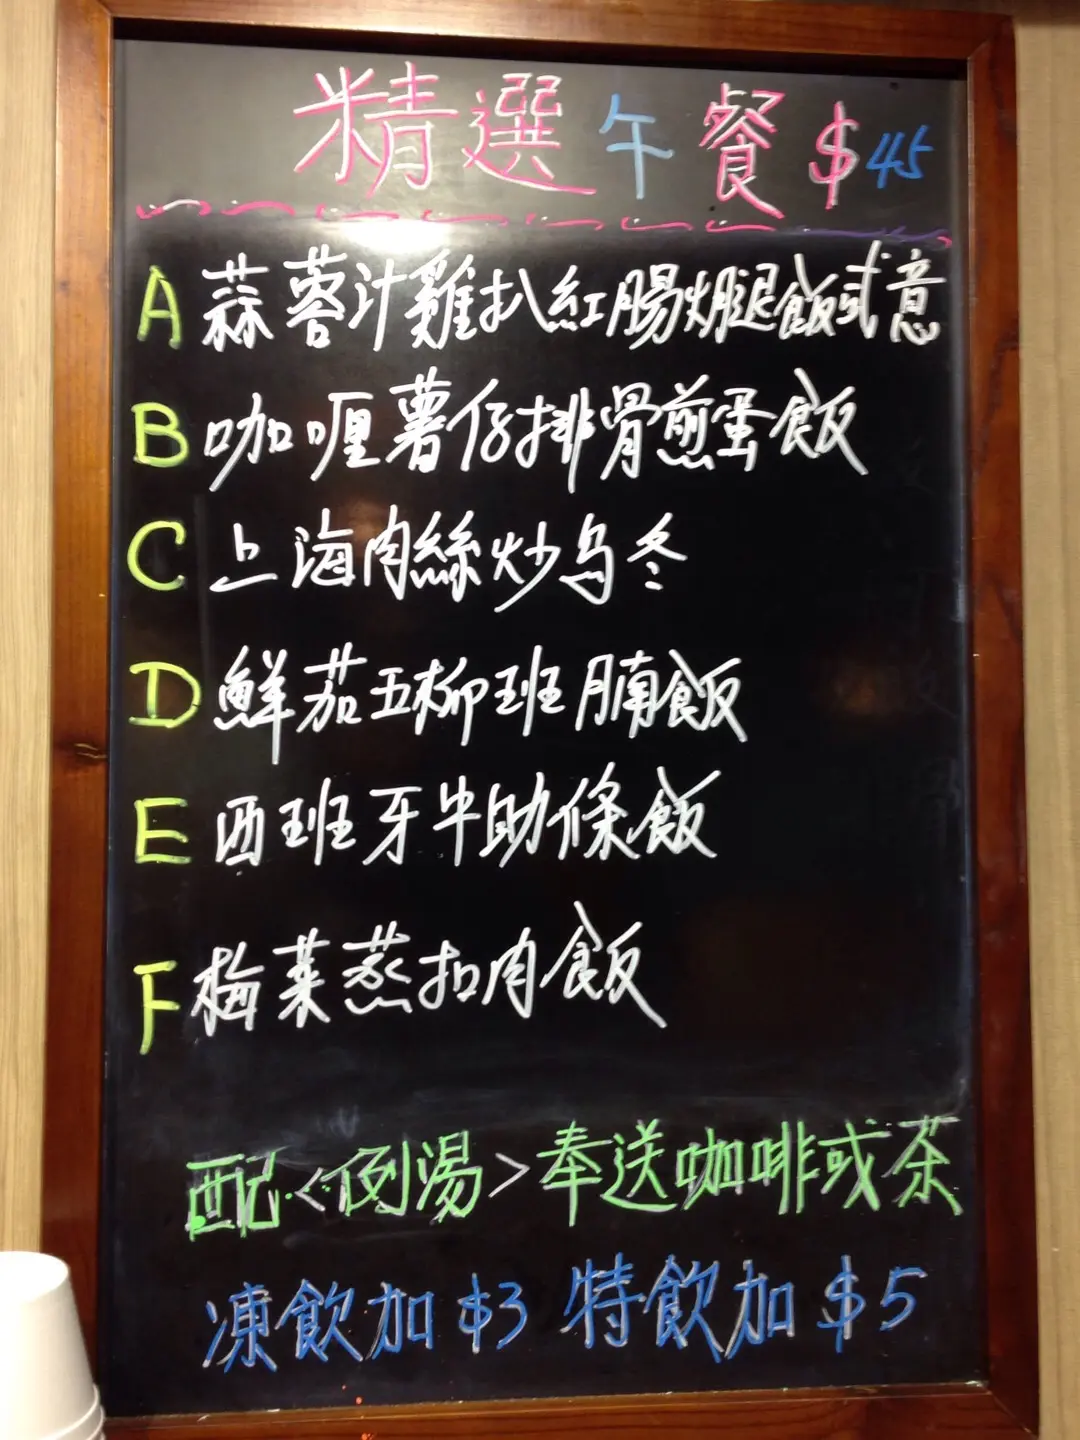 精選午餐$45
A 蒜蓉汁雞扒紅腸火腿飯或意
B 咖喱薯仔排骨煎蛋飯
C 上海肉絲炒烏冬
D 鮮茄五柳班腩飯
E 西班牙牛肋條飯
F 梅菜蒸扣肉飯
配<例湯>奉送咖啡或茶
凍飲加$3 特飲加$5